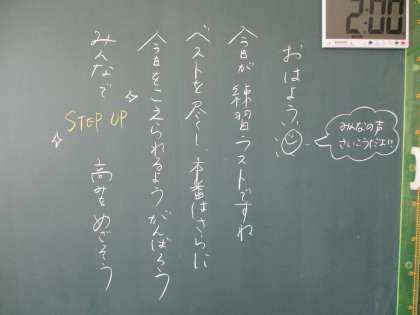 おはよう
今日が練習ラストですね
ベストを尽くし、本番はさらに
今日をこえられるようがんばろう
みんなで STEP UP 高みをめざそう
みんなの声
さいこうだよ!!
2:00